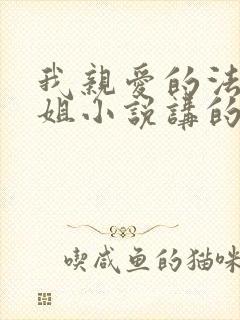 我親愛的法
姐小説講的
喫咸魚的猫咪